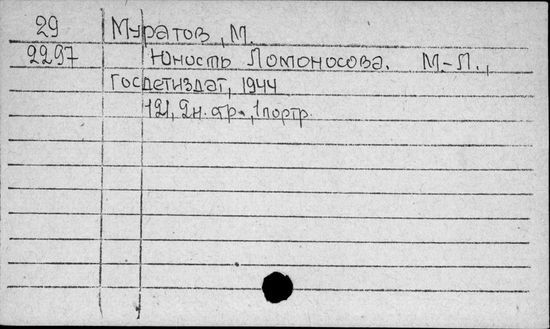 29 Муратов, М.
2297 Юность Ломоносова. М.-Л.,
Госдетиздат, 1944
121, 2н. стр., 1 портр.